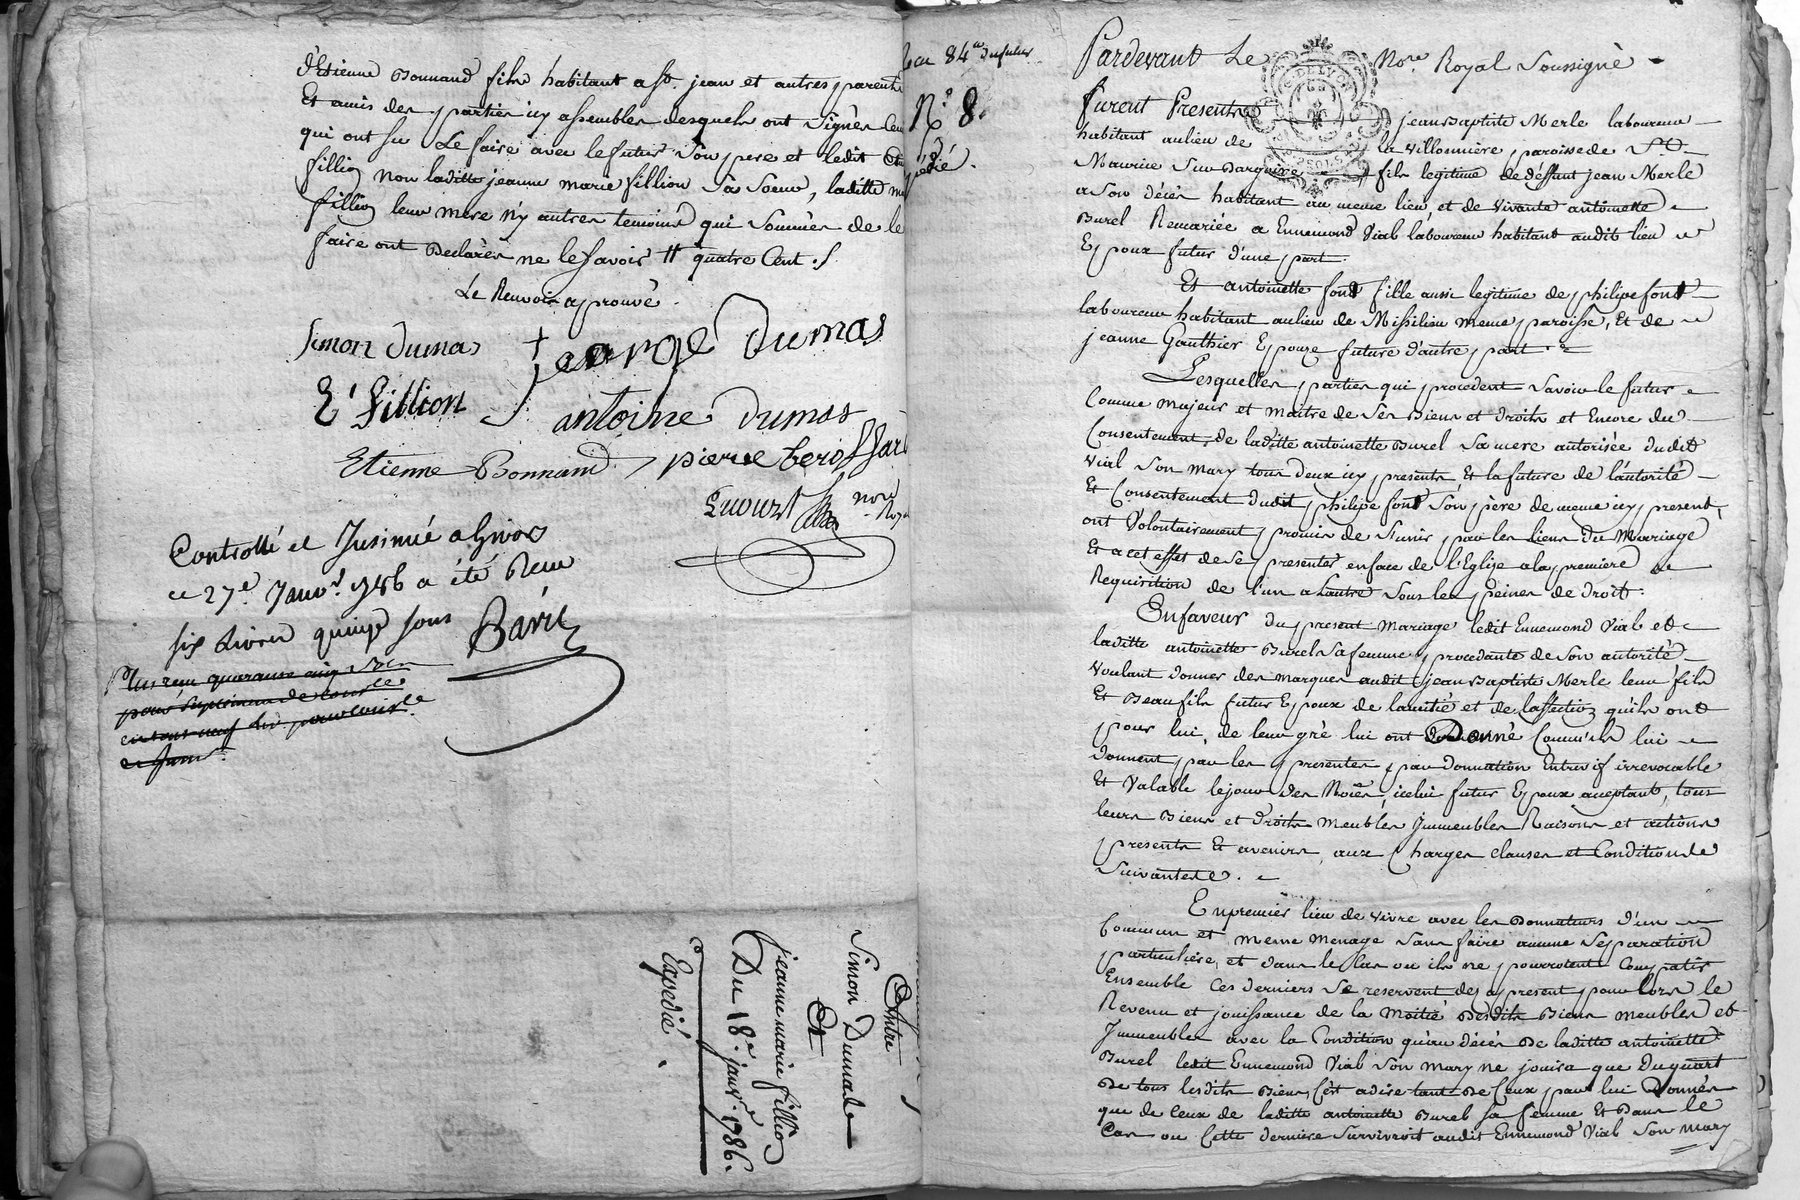 d'Etienne Bonnand fils habitant a St. jean et autres parents
Et amis des parties icy assembles desquels ont signés Ceux
qui ont su Le faire avec le futur Son pere et ledit
fillion non laditte jeanne marie fillion Sa Soeur, laditte
fillion leur mere n'y autres temoins qui Sommés de le
faire ont Declarés ne le Savoir # quatre Cent
Le Renvoir aprouvé
Simon dumas + jearge Dumas
E' Fillion antoine dumas
Etienne Bonnand pierre
nore
Roya
Controllé et Insinué a Givors
ce 27e. Janvr. 1786 a été Recu
six Livres quinze sous
Barii
Plus recu quarante cinq
Entre
Simon Dumas
Et
Jeanne marie fillion
Du 18e. janvr. 1786.
Expedié.
84
No. 8.
Pardevant Le Nore. Royal Soussigné
furent Presents jean Baptiste Merle laboureur
habitant au lieu de la Villonniere paroisse de St.
Maurice Sur Dargoire fils legitime de deffunt jean Merle
a Son décés habitant au meme lieu, et de vivante antoinette
Burel Remariée a Ennemond Vial laboureur habitant audit lieu
Epoux futur d'une part.
Et antoinette font fille aussi legitime de philipe font
laboureur habitant au lieu de Missilieu meme paroisse, Et de
jeanne Gauthier Epouze future d'autre part
Lesquelles parties qui procedent Savoir le futur
Comme majeur et maitre de Ses Biens et droits et Encore du
Consentement de laditte antoinette Burel Sa mere autorisée dudit
Vial Son mary tous deux icy presents, Et la future de l'autorité
Et Consentement dudit philipe font Son père de meme icy present,
ont Volontairement promis de S'unir par les liens du Mariage
Et a cet effet de Se presenter en face de l'Eglise a la premiere
Requisition de l'un a L'autre Sous les peines de droit.
En faveur du present mariage ledit Ennemond Vial et
laditte antoinette Burel Sa femme procedante de Son autorité
voulant donner des marques audit jean Baptiste Merle leur fils
Et Beaufils futur Epoux de lamitié et de Laffection quils ont
pour lui, de leur gré lui ont Donné Comm'ils lui
donnent par les presentes par donnation Entrevif irrevocable
Et Valable le jour des Noces, icelui futur Epoux acceptant, tous
leurs Biens et droits meubles Immeubles Raisons et actions
presents Et avenirs, aux Charges clauses et Conditions
Suivantes.
En premier lieu de vivre avec les Donnateurs d'un
Commun et meme menage Sans faire aucune Separation
particuliere, et dans le Cas ou ils ne pourroient Compatir
Ensemble Ces derniers Se reservent des a present pour lors le
Revenu et jouissance de la Moitié Desdits Biens meubles et
Immeubles avec la Condition qu'au décés De laditte antoinette
Burel ledit Ennemond Vial Son mary ne jouira que Du quart
De tous lesdits Biens C'est a dire tant De Ceux par lui Donnés
que de Ceux de laditte antoinette Burel Sa femme Et Dans le
Cas ou Cette derniere Survivroit audit Ennemond Vial Son mary